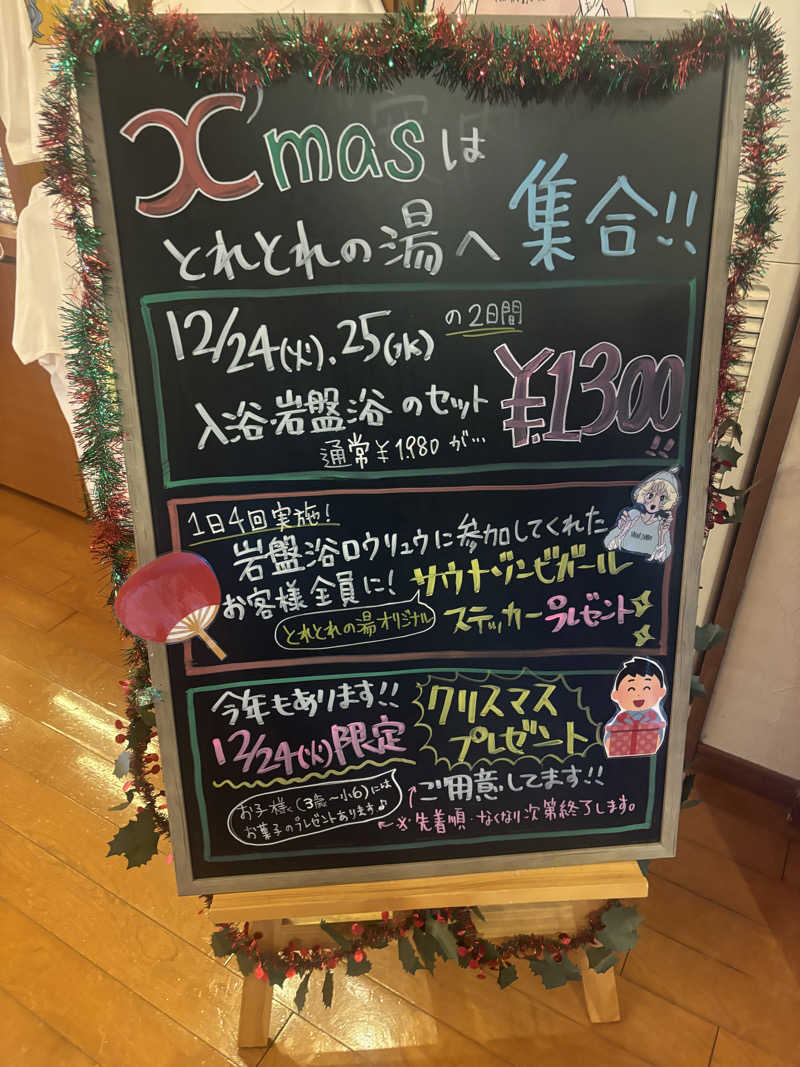 X'masは
とれとれの湯へ集合!!
12/24(火).25(水)の2日間
入浴・岩盤浴のセット ¥1300!!
通常¥1,980が…
1日4回実施!
岩盤浴ロウリュウに参加してくれた
お客様全員に! サウナゾンビガール
とれとれの湯オリジナル ステッカープレゼント
今年もあります!! クリスマス
12/24(火)限定 プレゼント
ご用意してます!!
お子様(3歳〜小6)には
お菓子のプレゼントあります♪
←※先着順・なくなり次第終了します。